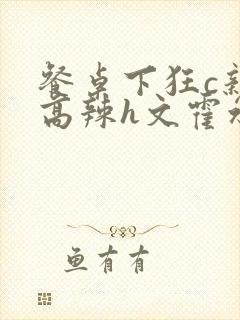 餐桌下狂c
高辣h文霍
鱼有有